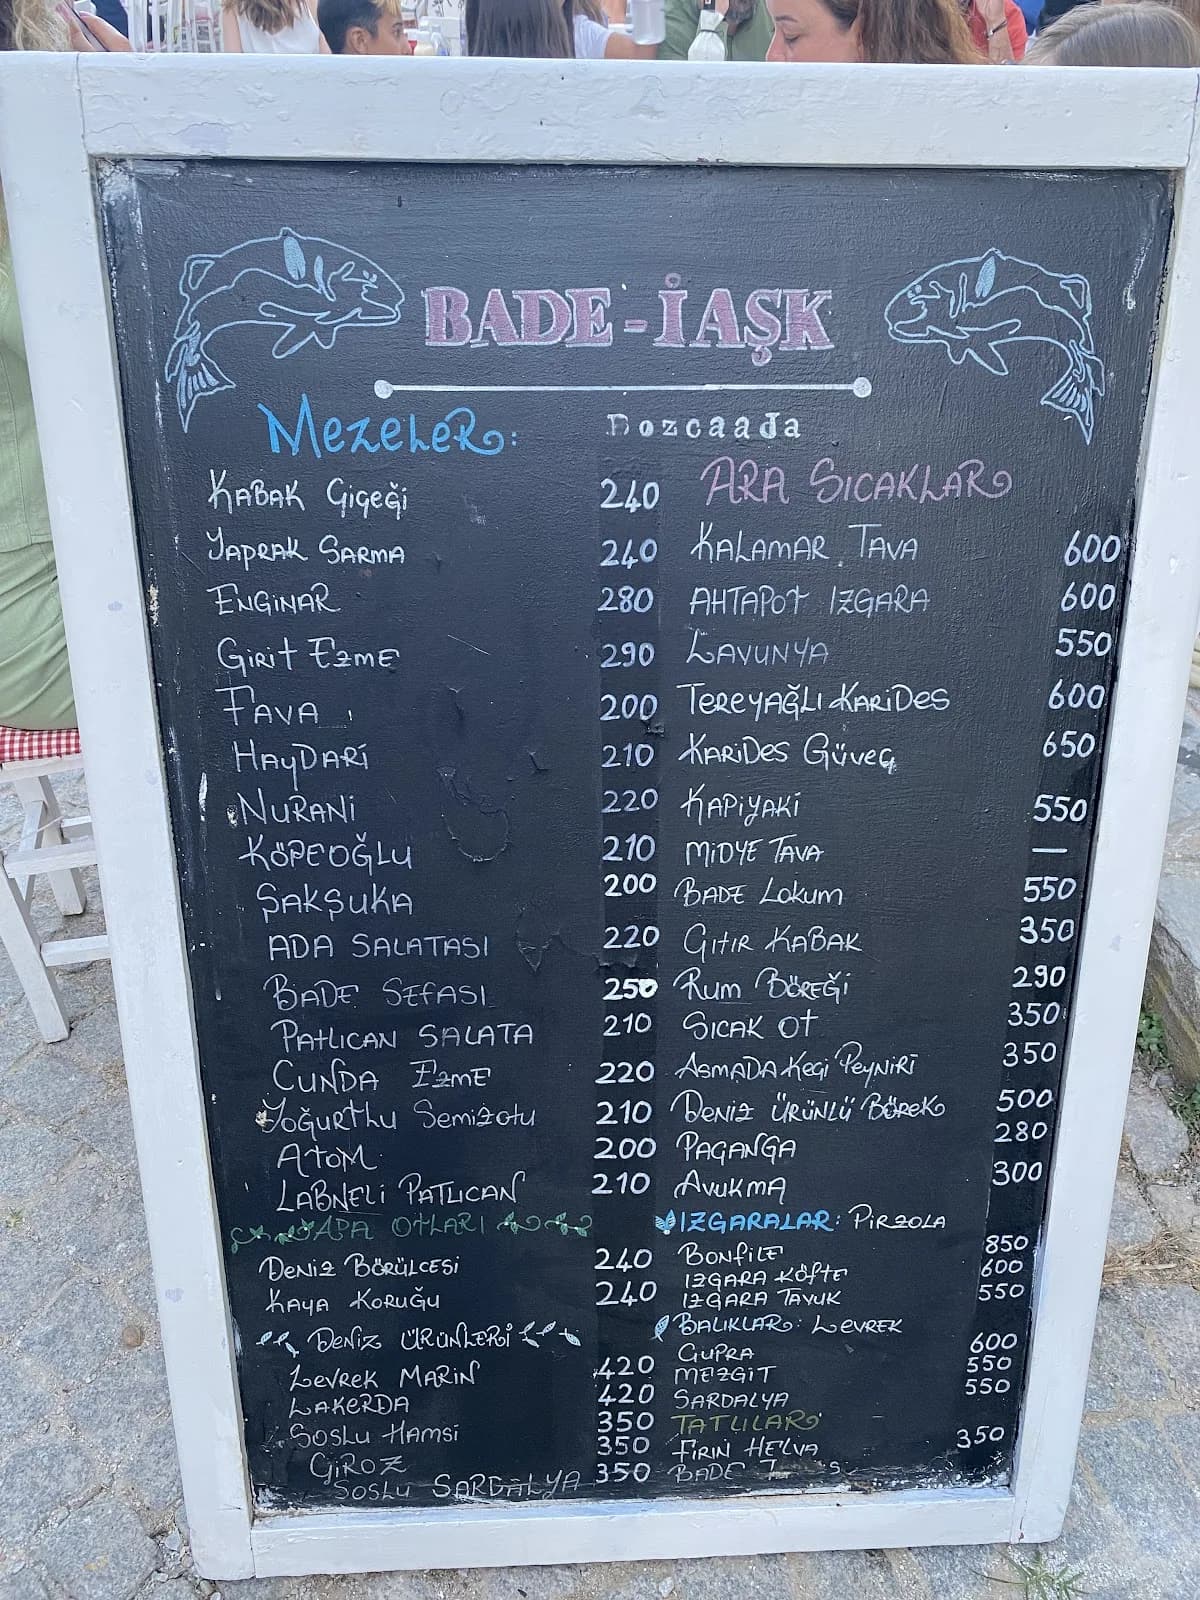 BADE-İAŞK
Bozcaada
MEZELER:
KABAK ÇİÇEĞİ 240
YAPRAK SARMA 240
ENGİNAR 280
GİRİT EZME 290
FAVA 200
HAYDARİ 210
NURANİ 220
KÖPEOĞLU 210
ŞAKŞUKA 200
ADA SALATASI 220
BADE SEFASI 250
PATLICAN SALATA 210
CUNDA EZME 220
YOĞURTLU SEMİZOTU 210
ATOM 200
LABNELİ PATLICAN 210
ADA OTLARI
DENİZ BÖRÜLCESİ 240
KAYA KORUĞU 240
DENİZ ÜRÜNLERİ
LEVREK MARİN 420
LAKERDA 420
SOSLU HAMSİ 350
ÇİROZ 350
SOSLU SARDALYA 350
ARA SICAKLAR
KALAMAR TAVA 600
AHTAPOT IZGARA 600
LAVUNYA 550
TEREYAĞLI KARİDES 600
KARİDES GÜVEÇ 650
KAPİYAKİ 550
MİDYE TAVA —
BADE LOKUM 550
ÇITIR KABAK 350
RUM BÖREĞİ 290
SICAK OT 350
ASMADA KEÇİ PEYNİRİ 350
DENİZ ÜRÜNLÜ BÖREK 500
PAÇANGA 280
AVUKMA 300
IZGARALAR: PİRZOLA
BONFİLE 850
IZGARA KÖFTE 600
IZGARA TAVUK 550
BALIKLAR: LEVREK
ÇUPRA 600
MEZGİT 550
SARDALYA 550
TATLILAR
FIRIN HELVA 350
BADE